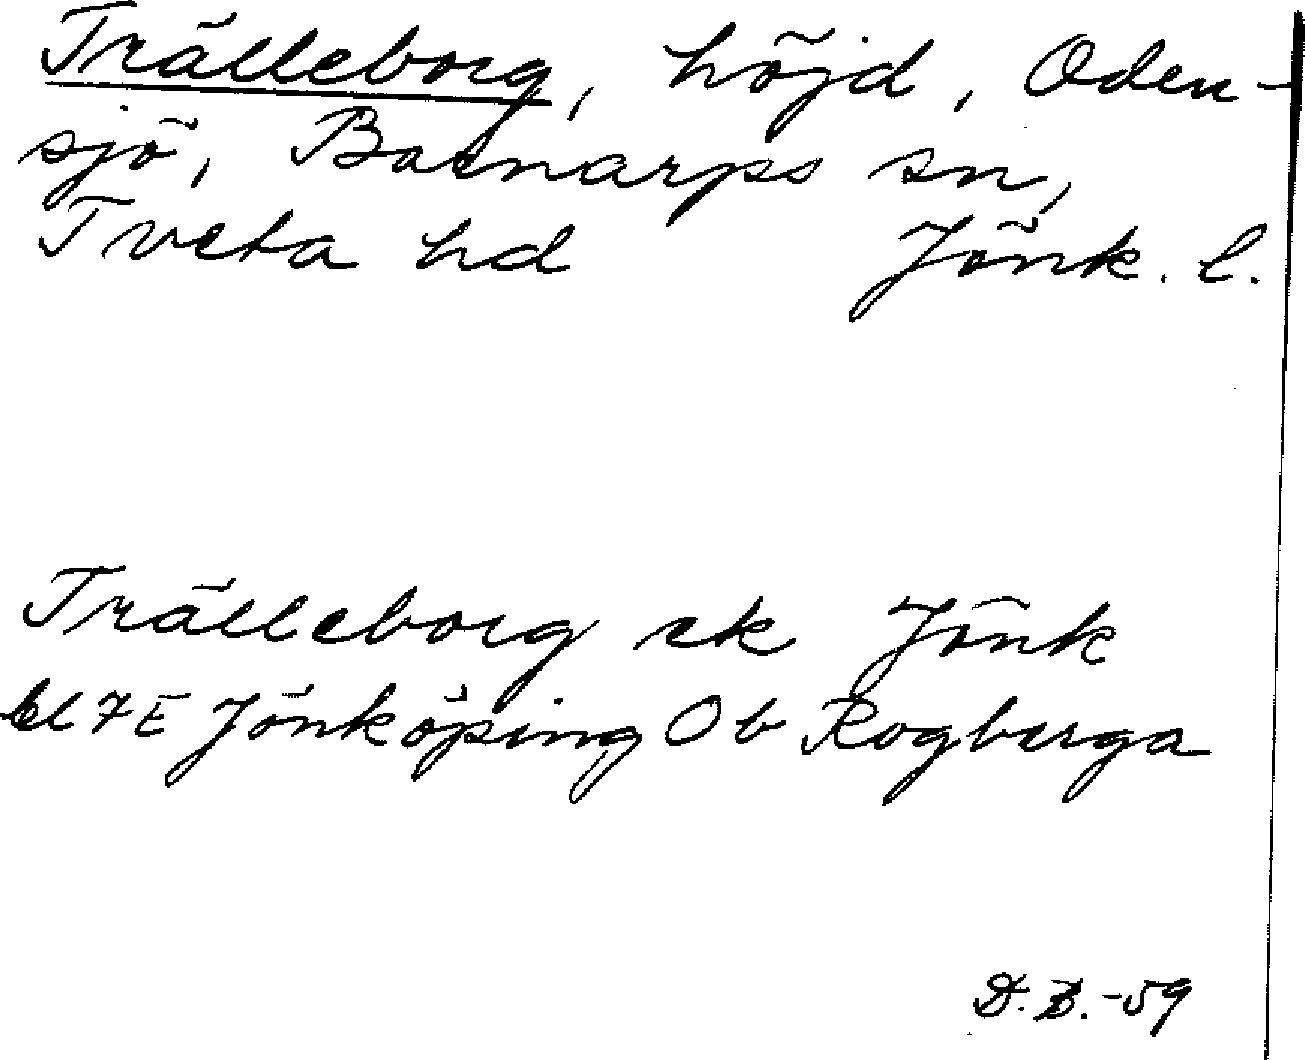 Trälleborg, höjd, Oden-
sjö, Barnarps sn,
Tveta hd Jönk. l.
Trälleborg ek Jönk
bl 7E Jönköping Ob Rogberga
D.Z.-59